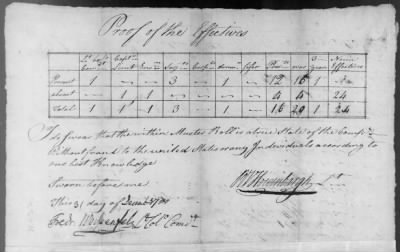 Proof of the Effectives
Lt Colo Comdt Capt Lieut Ensn Serjt Corpl Drum Fifer Privt 3 years Non Effective
Present 1 1 3 1 12 16 1
absent 1 1 4 4 24
Total 1 1 1 3 1 16 20 1 24
To Swear that the within Muster Roll is a true State of the Compy
without fraud to the united States or any Individuals according to
our best Knowledge
Sworn before me
This 31 day of
Fredk Weissenfels Lt Colo Comdt
Lt